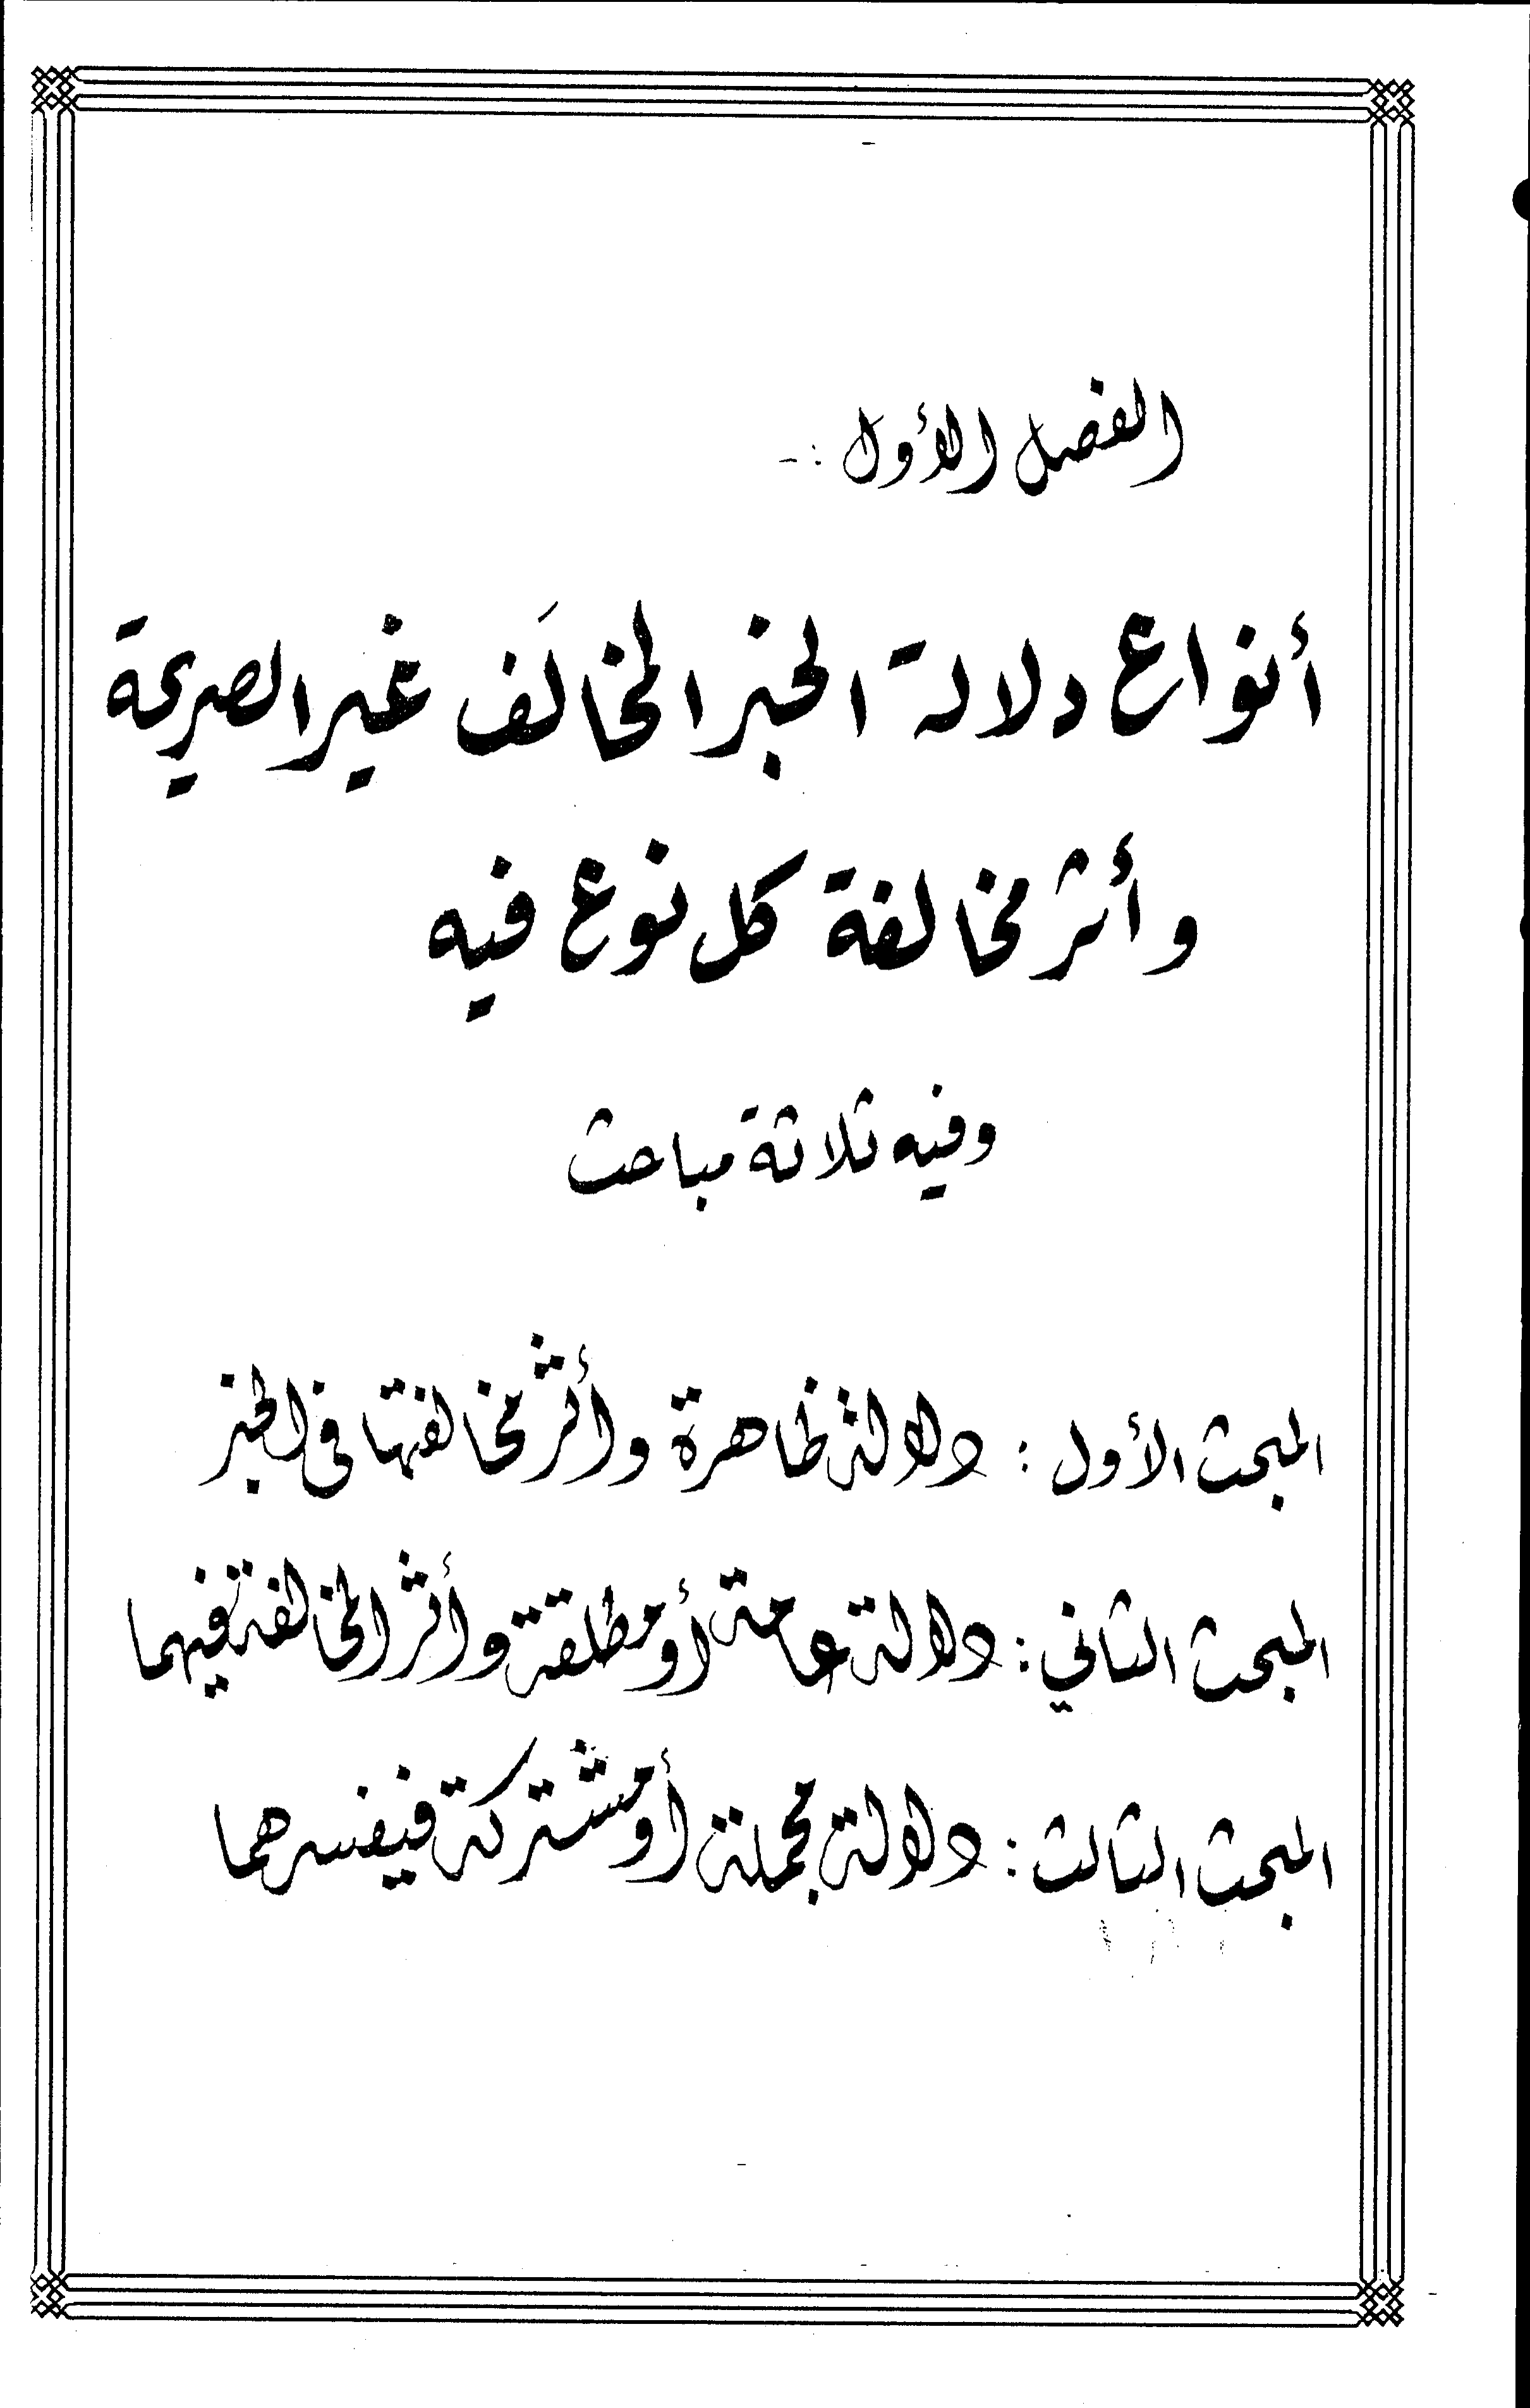 الفصل الأول :-
أنواع دلالة الخبر المخالَف غير الصريحة
وأثر مخالفة كل نوع فيه
وفيه ثلاثة مباحث
المبحث الأول : دلالة ظاهرة وأثر مخالفتها في الخبر
المبحث الثاني : دلالة عامة أو مطلقة وأثر المخالفة فيهما
المبحث الثالث : دلالة مجملة أو مشتركة فيفسرهما